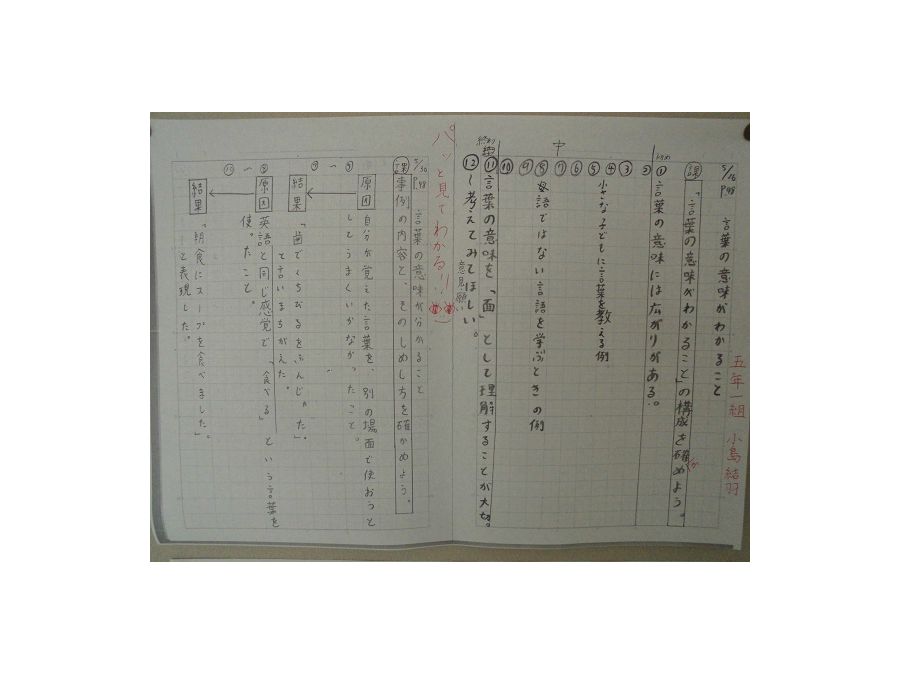 五年一組 小島 結羽
5/16
P.48
言葉の意味がわかること
課
「言葉の意味がわかること」の構成を確めよう。
か
はじめ
①
言葉の意味には広がりがある。
②
中
③
④
小さな子どもに言葉を教える例
⑤
⑥
⑦
⑧
母語ではない言語を学ぶときの例
⑨
⑩
終わり
⑪
言葉の意味を「面」として理解することが大切。
⑫
〜考えてみてほしい。
意見
願い
パッと見てわかる!!
5/30
P.48
言葉の意味が分かること
課
事例の内容と、そのしめし方を確かめよう。
原因
自分が覚えた言葉を、別の場面で使おうと
してうまくいかなかったこと。
結果
「歯でくちびるをふんじゃった」。
と言いまちがえた。
原因
英語と同じ感覚で「食べる」という言葉を
使ったこと。
結果
「朝食にスープを食べました」。
と表現した。